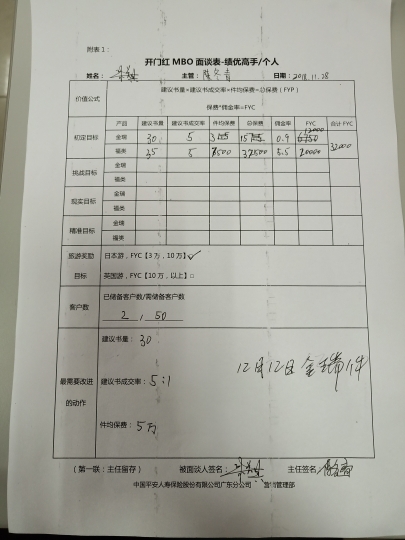 附表1：
开门红 MBO 面谈表-绩优高手/个人
姓名： 主管： 日期：2018.11.28
价值公式 建议书量×建议书成交率×件均保费=总保费（FYP）
保费*佣金率=FYC
产品 建议书量 建议书成交率 件均保费 总保费 佣金率 FYC 合计 FYC
初定目标 金瑞 30 5 0.9 12000 32000
福类 35 5 7500 37500 5.5 20000
挑战目标 金瑞
福类
现实目标 金瑞
福类
精准目标 金瑞
福类
旅游奖励 日本游，FYC【3万，10万】✓
目标 英国游，FYC【10万，以上】□
客户数 已储备客户数/需储备客户数
2 , 50
建议书量：30
12月12日 金瑞1件
最需要改进 建议书成交率：5:1
的动作
件均保费：5万
（第一联：主任留存） 被面谈人签名： 主任签名：
中国平安人寿保险股份有限公司广东分公司 营销管理部